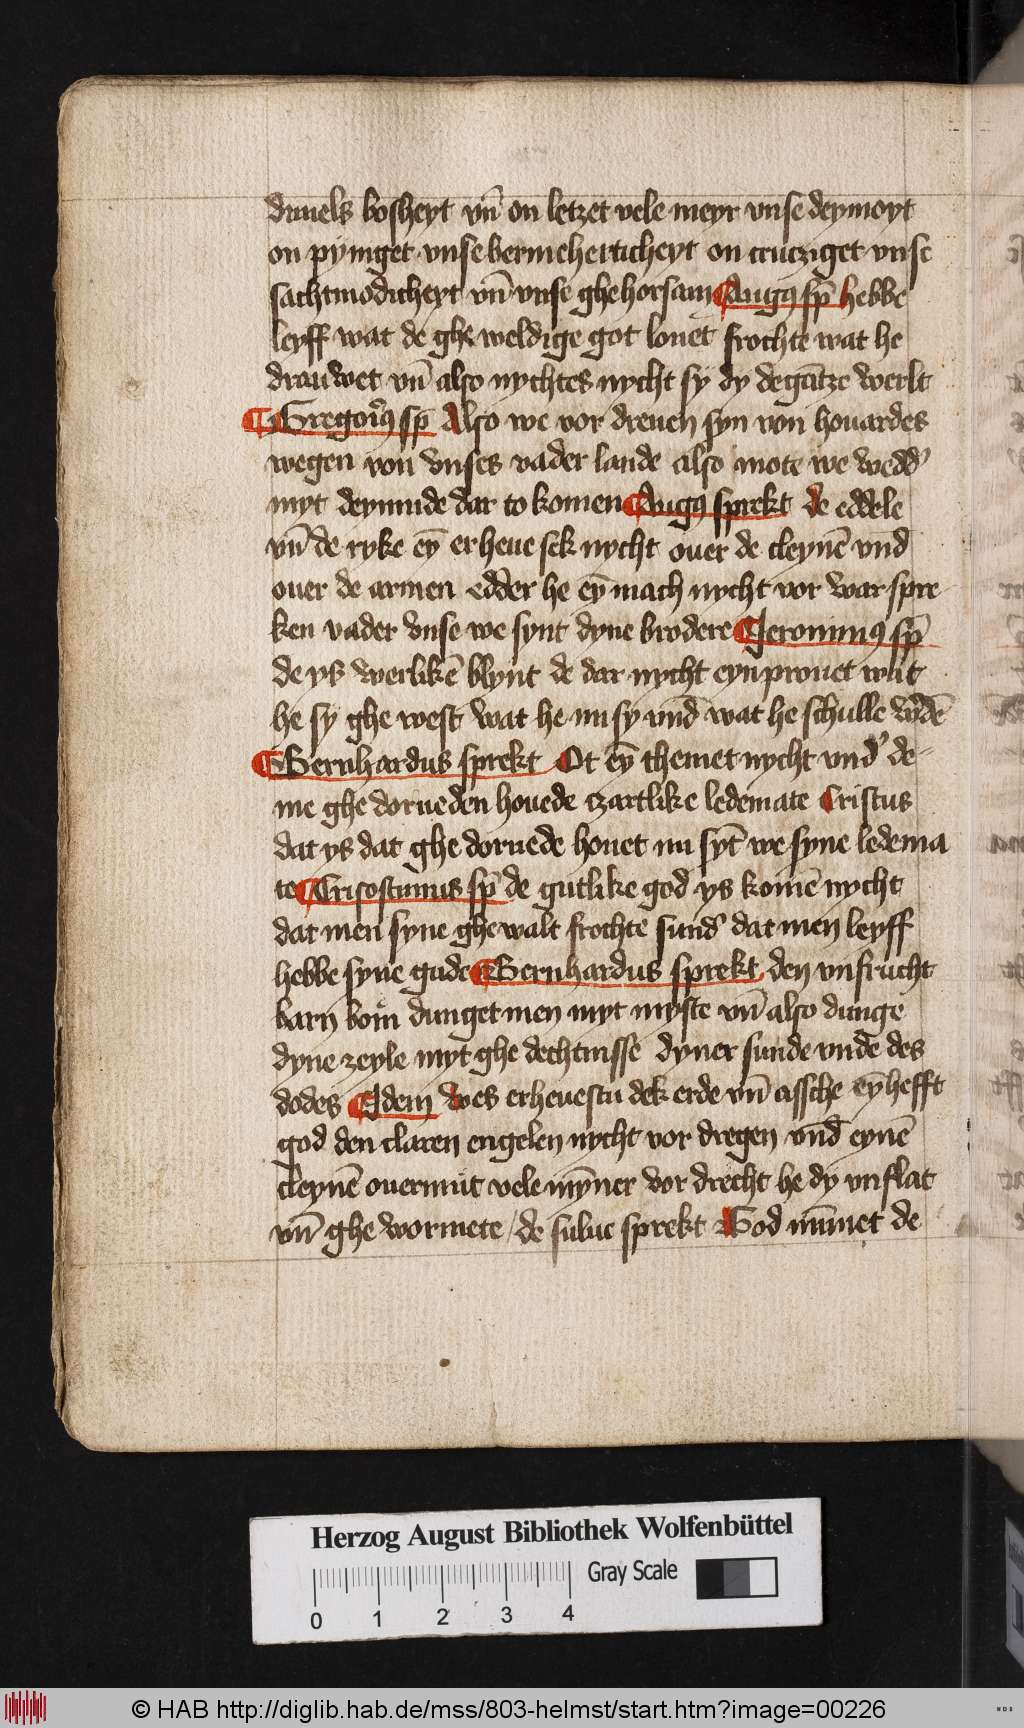 duuels bosheyt vn̄ on letzet vele meyr vnse deymoyt
on pyinget vnse bermeherticheyt on crucziget vnse
sachtmodicheyt vn̄ vnse ghehorsam Augꝰ sp̄ hebbe
leyff wat de ghe weldige got louet frochte wat he
drauwet vn̄ also nychtes nycht sy dy de gātze werlt
Gregoriꝰ sp̄ Also we vor dreuen syn von houardes
wegen von vnses vader lande also mote we wedd̉
myt deymude dar to komen Augꝰ sprekt de eddele
vn̄ de ryke eȳ erheue sek nycht ouer de cleynē vnd
ouer de armen edder he eȳ mach nycht vor war spre
ken vader vnse we synt dyne brodere Jeronimꝰ sp̄
de ys werlikē blynt de dar nycht eyn prouet wat
he sy ghe west wat he nu sy vnd wat he schulle w̉dē
Bernhardus sprekt Ot eȳ themet nycht vnd̉ de-
me ghe dorueden houede czartlike ledemate Cristus
dat ys dat ghe doruede houet nu syt̄ we syne ledema
te Crisostumus sp̄ de gutlike god ys komē nycht
dat men syne ghewalt frochte sund̉ dat men leyff
hebbe syne gude Bernhardus sprekt den vnfrucht
barn bom dunget men myt myste vn̄ also dunge
dyne zeyle myt ghe dechtnisse dyner sunde vnde des
dodes Idem wes erheuestu dek erde vn̄ assche eȳ hefft
god den claren engelen nycht vor dregen vnd eynē
cleynē ouermut vele mȳner vor drecht he dy vnflat
vn̄ ghe wormete / de sulue sprekt God nūmet de
Herzog August Bibliothek Wolfenbüttel
Gray Scale
0 1 2 3 4
© HAB http://diglib.hab.de/mss/803-helmst/start.htm?image=00226